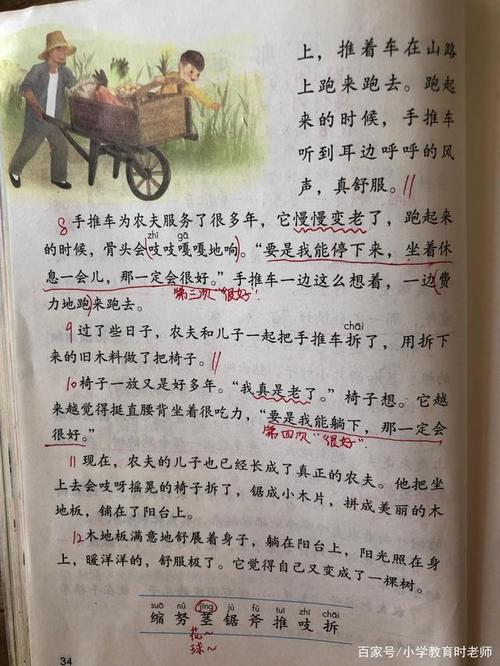 上，推着车在山路
上跑来跑去。跑起
来的时候，手推车
听到耳边呼呼的风
声，真舒服。
8 手推车为农夫服务了很多年，它慢慢变老了，跑起来
zhī gā
的时候，骨头会吱吱嘎嘎地响。“要是我能停下来，坐着休
息一会儿，那一定会很好。”手推车一边这么想着，一边费
第三次“很好”
力地跑来跑去。
chāi
9 过了些日子，农夫和儿子一起把手推车拆了，用拆下
来的旧木料做了把椅子。
10 椅子一放又是好多年。“我真是老了。”椅子想。它越
来越觉得挺直腰背坐着很吃力，“要是我能躺下，那一定会
很好。”
第四次“很好”
11 现在，农夫的儿子也已经长成了真正的农夫。他把坐
上去会吱呀摇晃的椅子拆了，锯成小木片，拼成美丽的木
地板，铺在了阳台上。
12 木地板满意地舒展着身子，躺在阳台上，阳光照在身
上，暖洋洋的，舒服极了。它觉得自己又变成了一棵树。
suō nǔ jīng jù fǔ tuī zhī chāi
缩 努 茎 锯 斧 推 吱 拆
花～
球～
34
百家号/小学教育时老师